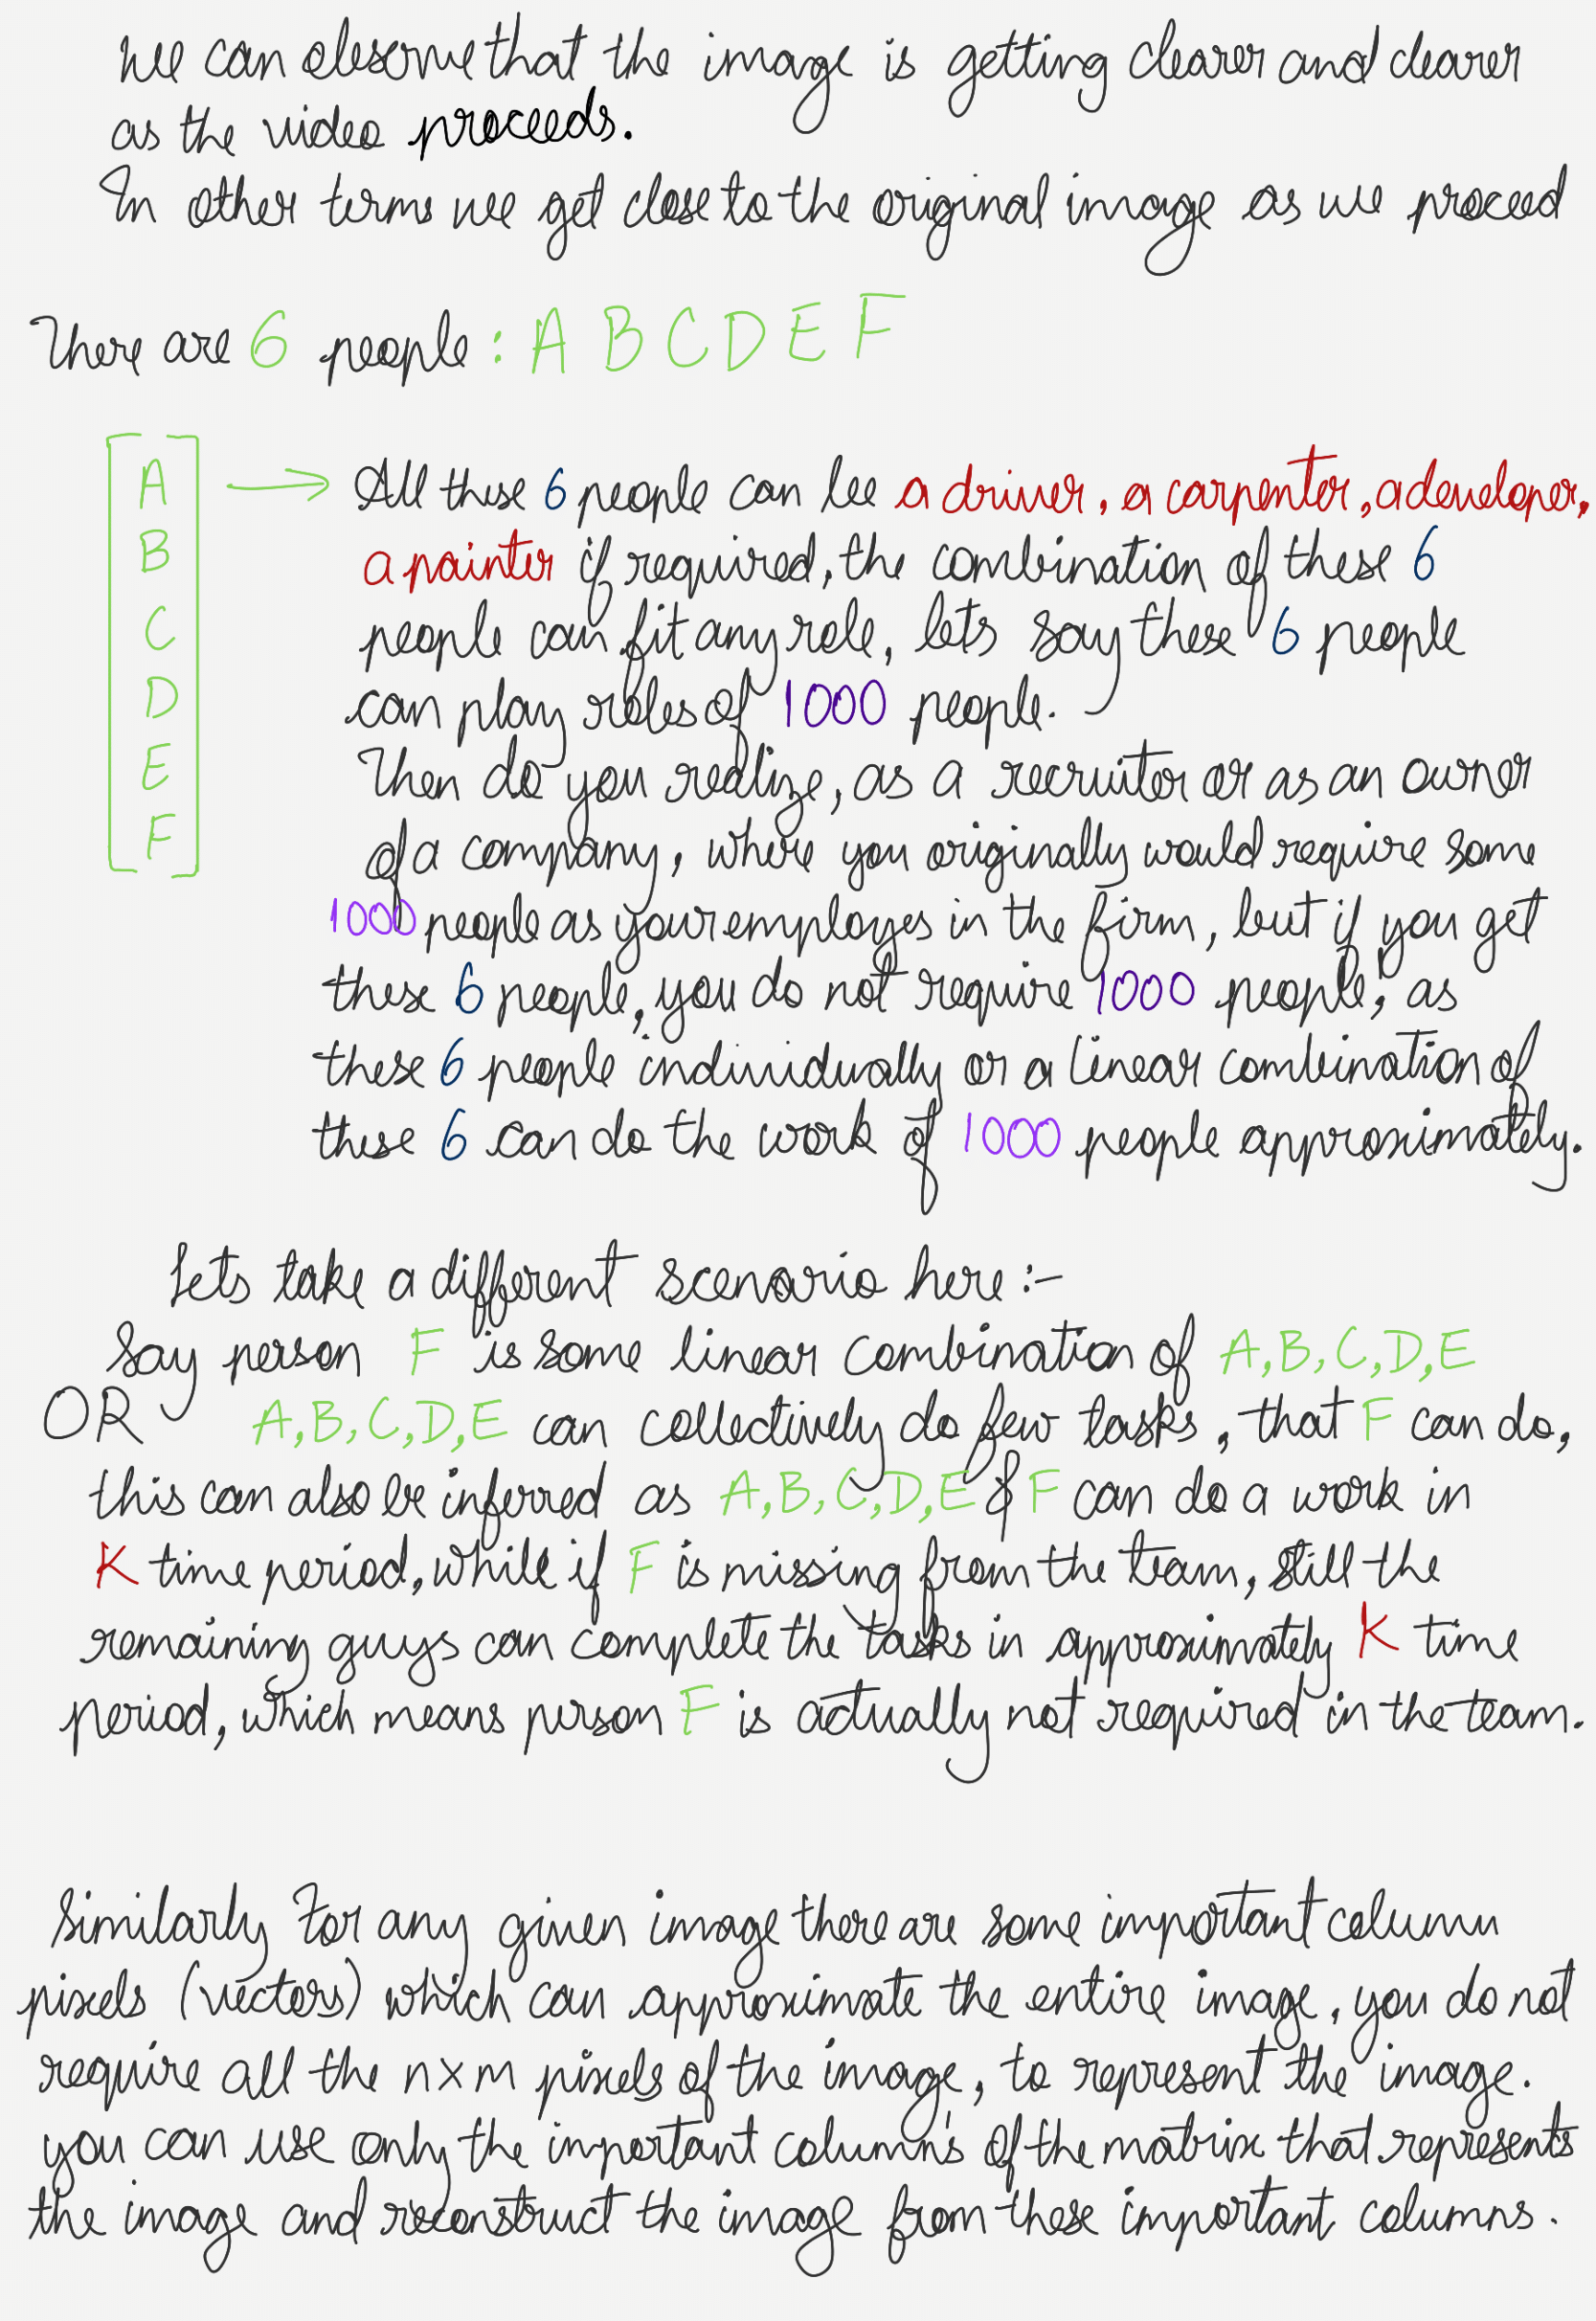 We can observe that the image is getting clearer and clearer
as the video proceeds.
In other terms we get close to the original image as we proceed
There are 6 people : A B C D E F
A → All these 6 people can be a driver, a carpenter, a developer,
B a painter if required, the combination of these 6
C people can fit any role, lets say these 6 people
D can play roles of 1000 people.
E Then do you realize, as a recruiter or as an owner
F of a company, where you originally would require some
1000 people as your employes in the firm, but if you get
these 6 people, you do not require 1000 people, as
these 6 people individually or a linear combination of
these 6 can do the work of 1000 people approximately.
Lets take a different scenario here :-
Say person F is some linear combination of A, B, C, D, E
OR A, B, C, D, E can collectively do few tasks, that F can do,
this can also be inferred as A, B, C, D, E & F can do a work in
K time period, while if F is missing from the team, still the
remaining guys can complete the tasks in approximately K time
period, which means person F is actually not required in the team.
Similarly For any given image there are some important column
pixels (vectors) which can approximate the entire image, you do not
require all the n x m pixels of the image, to represent the image.
you can use only the important column's of the matrix that represents
the image and reconstruct the image from these important columns.